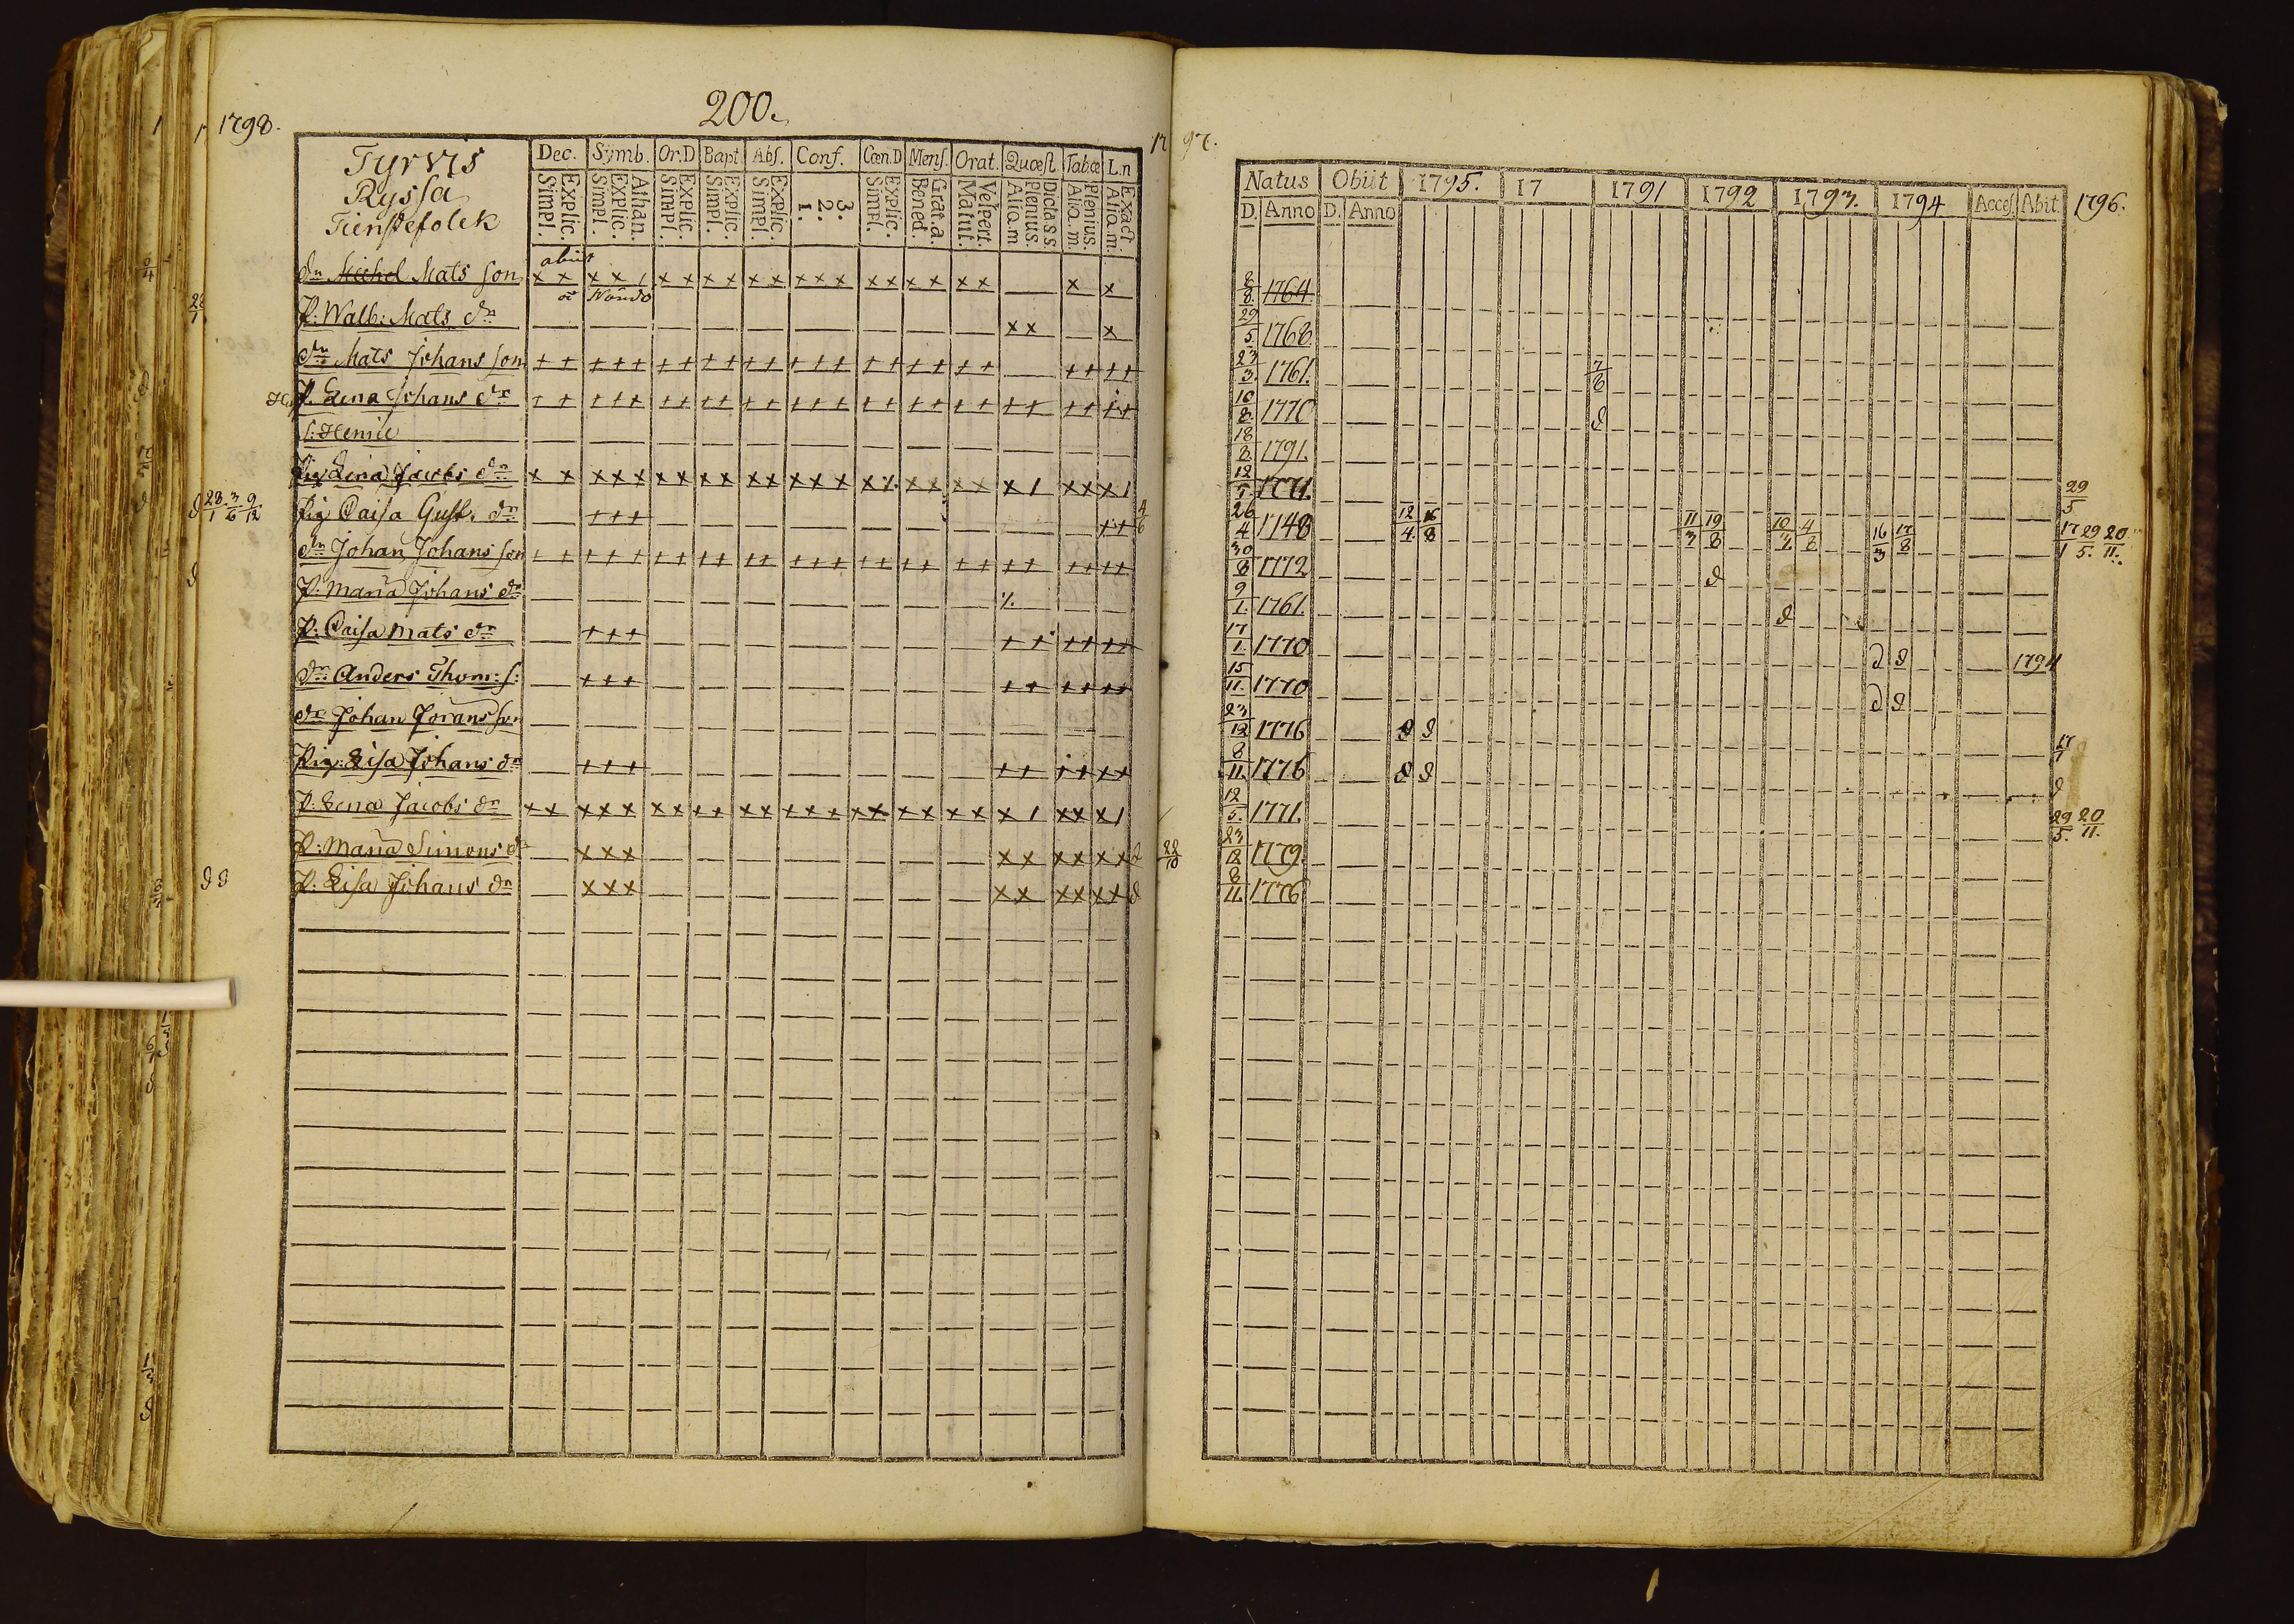 200.
1798.
1797.
Tyrvis
Ryssa
Tienstefolck
Dec. Symb. Or.D Bapt. Abs. Conf. Cœn.D Mens. Orat. Quæst. Tabœ L.n
Simpl. Explic. Simpl. Explic. Athan. Simpl. Explic. Simpl. Explic. Simpl. Explic. 1. 2. 3. Simpl. Explic. Bened. Grat.a. Matut. Vespert. Aliq.m Plenius. Dicta s.s. Aliq.m. Plenius. Aliq.m. Exact.
abiit
Dn Michel Mats son x x x x / x x x x x x x x x x x x x x x x x
P: Walb: Mats dr x x x
Dn Mats Johans son + + + + + + + + + + + + + + + + + + + + + + +
P. Lena Johans dr + + + + + + + + + + + + + + + + + + + + + + + +
s: Henric
Pig Lena Jacobs dr x x x x x x x x x x x x x x x x x x x x x / x x x /
Pig Caisa Gust. dr + + + + +
Dn Johan Johans son + + + + + + + + + + + + + + + + + + + + + + + +
P: Maria Johans dr
P: Caisa Mats dr + + + + + + + + +
Dn Anders Thom: s: + + + + + + + + +
Dn Johan Jörans son
Pig: Lisa Johans dr + + + + + + + + +
P: Lena Jacobs dr x x x x x x x x x x x x x x x x x x x x x / x x x /
P: Maria Simons dr x x x x x x x x x
P: Lisa Johans dr x x x x x x x x x
Natus Obiit 1795. 17 1791 1792 1793. 1794 Acces. Abit. 1796.
D. Anno D. Anno
8/8. 1764.
29/5. 1768.
23/3. 1761. 7/8
10/8. 1770
18/8. 1791.
12/5. 1771. 29/5
26/4 1748 12/4 16/8 11/3 19/8 10/2 4/8 16/3 17/8 17/1 29/5. 20/11.
30/8 1772
9/1. 1761.
17/1. 1770 1794
15/11. 1770
23/12 1776
8/11. 1776
12/5. 1771. 29/5. 20/11.
23/12 1779.
8/11. 1776